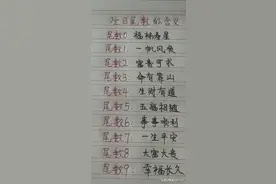 生日尾数的含义
尾数0 福禄寿星
尾数1 一帆风顺
尾数2 富贵可求
尾数3 命有靠山
尾数4 生财有道
尾数5 五福相随
尾数6 事事顺利
尾数7 一生平安
尾数8 大富大贵
尾数9 幸福长久